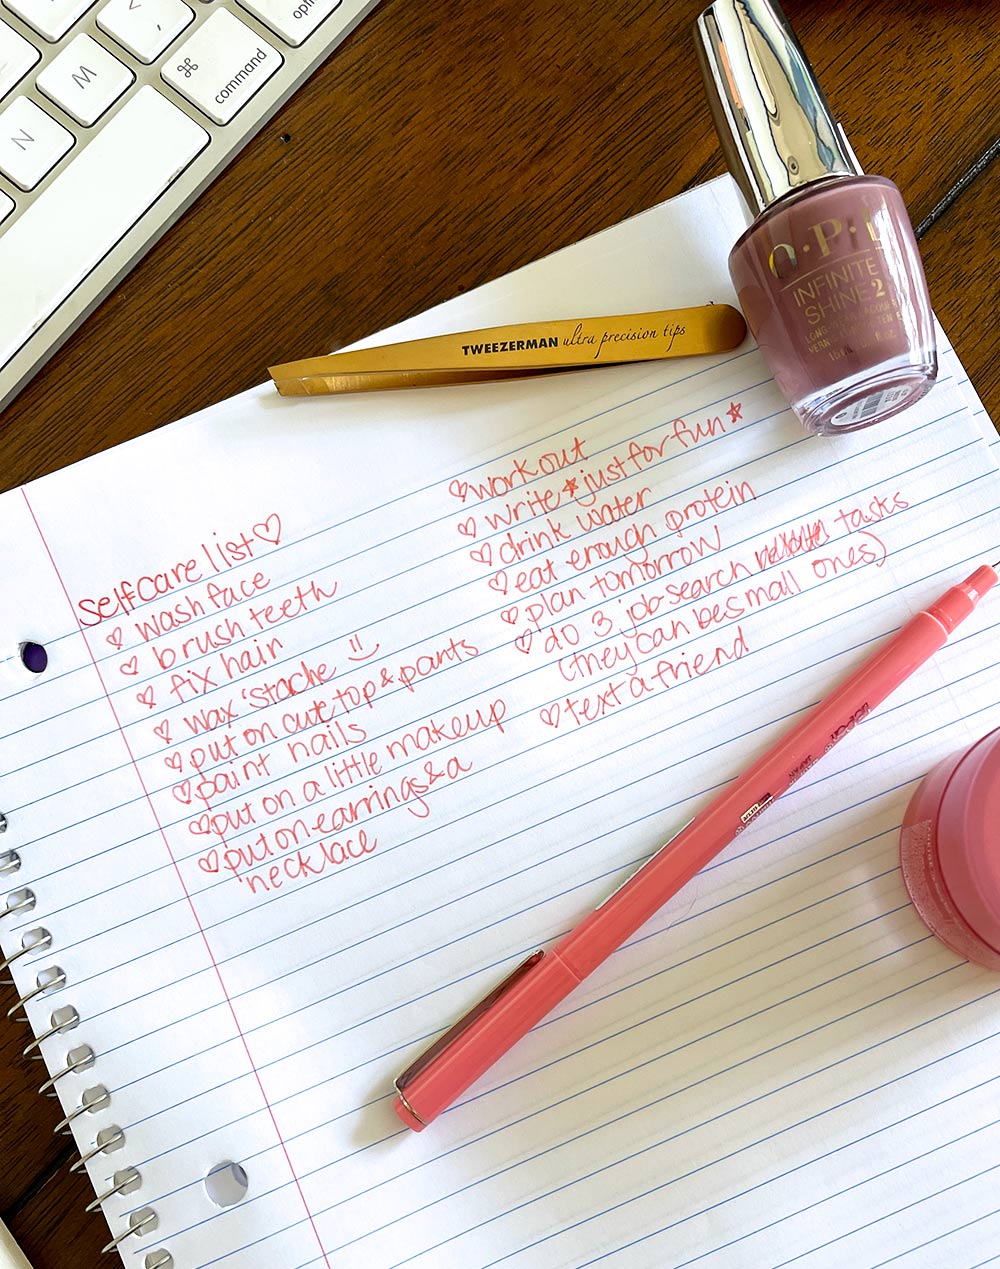 N
M
<
,
⌘
command
opti
O·P·I
INFINITE
SHINE 2
TWEEZERMAN ultra precision tips
self care list ♡
♡ wash face
♡ brush teeth
♡ fix hair
♡ wax 'stache
♡ put on cute top & pants
♡ paint nails
♡ put on a little makeup
♡ put on earrings & a
necklace
♡ work out
♡ write ☆ just for fun ☆
♡ drink water
♡ eat enough protein
♡ plan tomorrow
♡ do 3 job-search tasks
(they can be small ones)
♡ text a friend